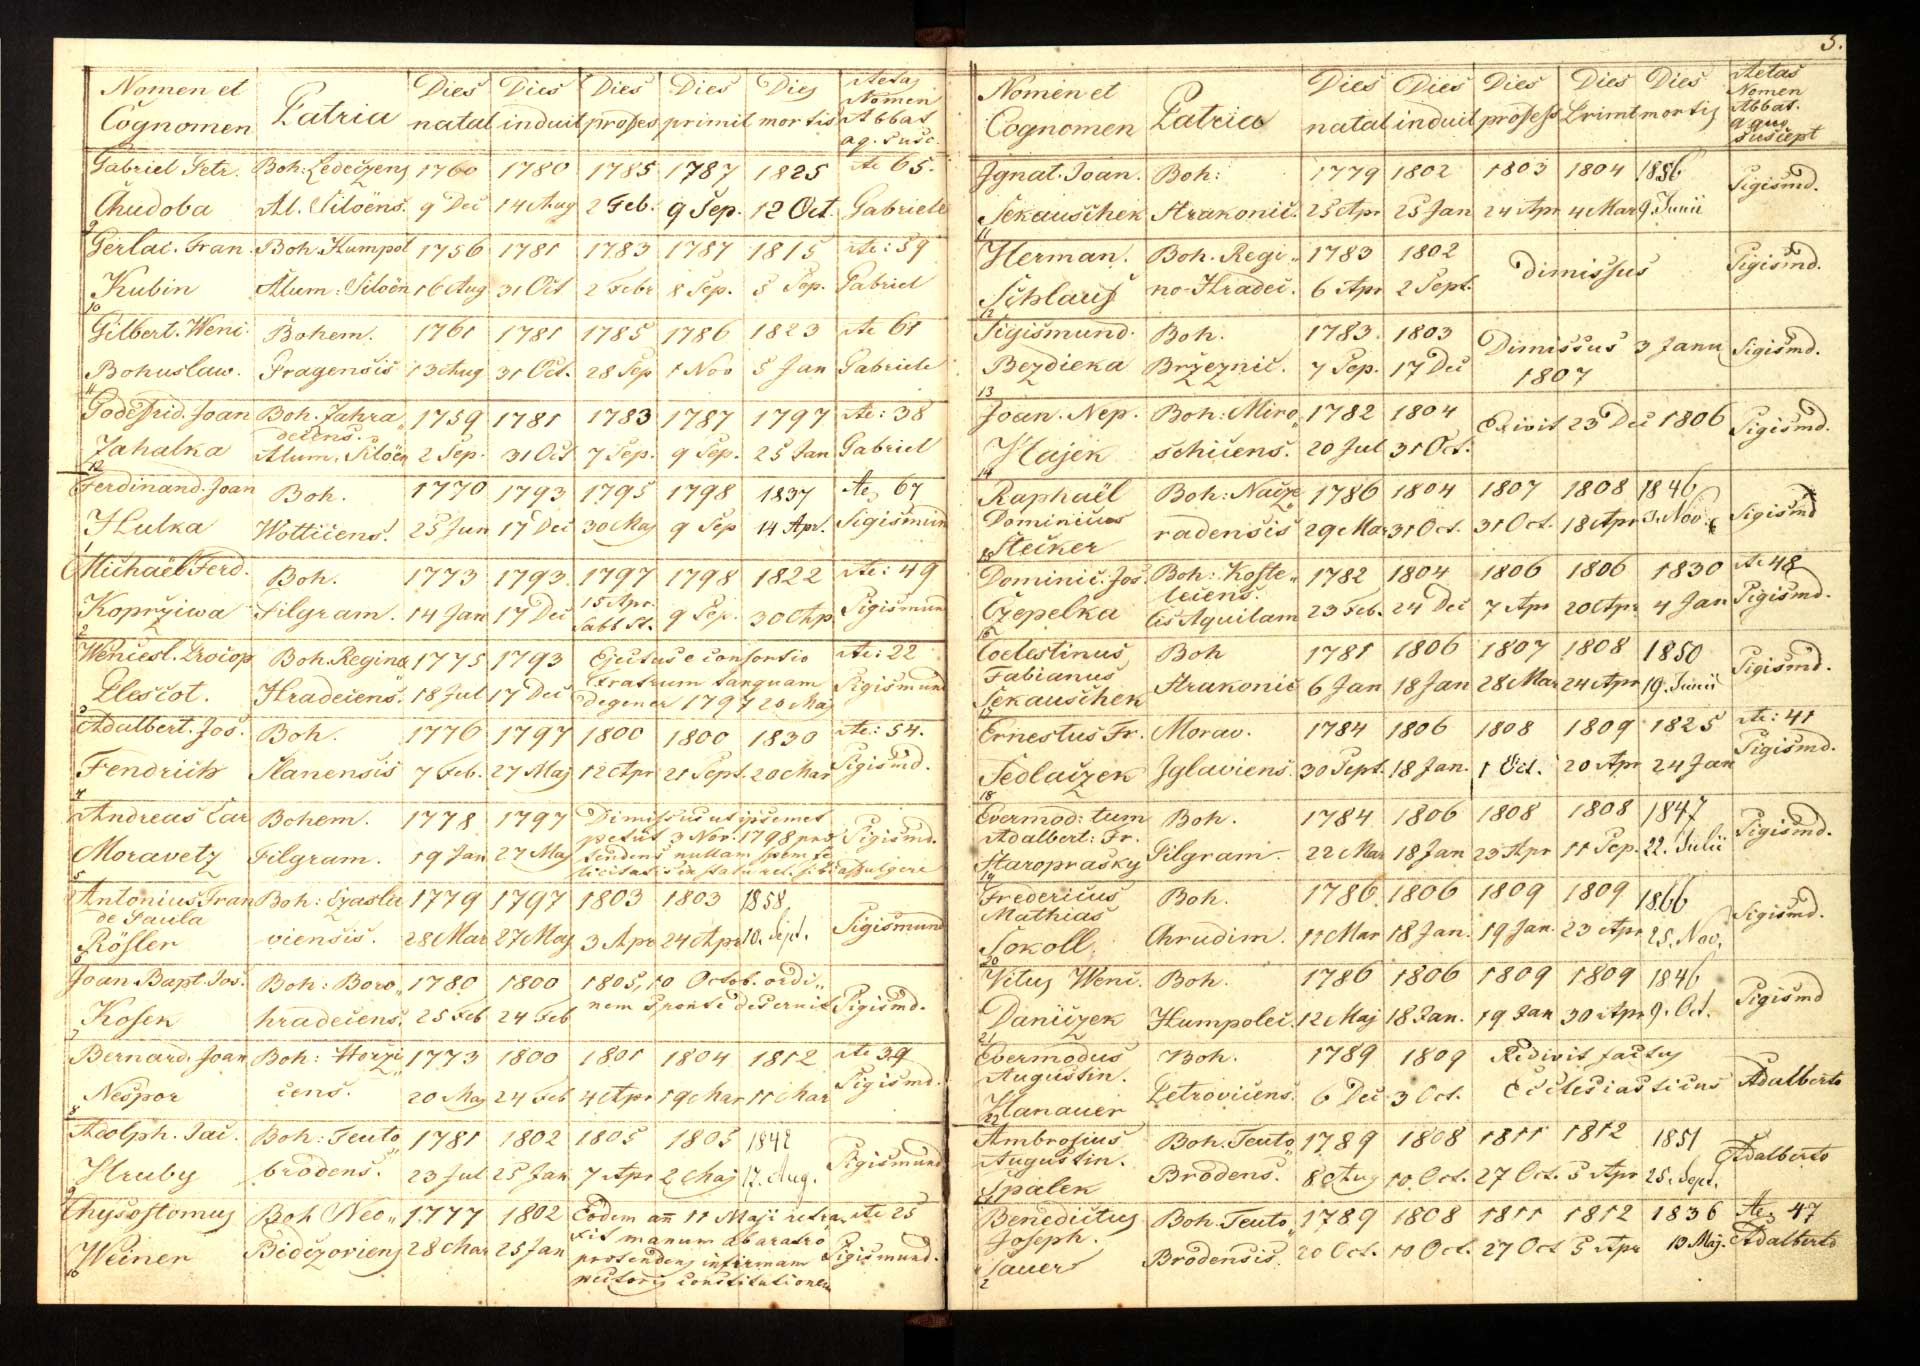 Nomen et Patria Dies Dies Dies Dies Dies Aetas
Cognomen natal induit profess primit mortis Nomen Abbat
a q. susc.
Gabriel Petr. Boh: Ledeczens 1760 1780 1785 1787 1825 Ae 65.
Chudoba Al. Siloëns. 9 Dec 14 Aug 2 Feb. 9 Sep. 12 Oct. Gabriele
9
Gerlac. Fran. Boh. Humpol 1756 1781 1783 1787 1815 Ae: 59
Kubin Alum: Siloën 16 Aug 31 Oct 2 Febr 8 Sep. 5 Sep. Gabriel
10
Gilbert. Weni. Bohem. 1761 1781 1785 1786 1823 Ae 61
Bohuslaw. Pragensis 13 Aug 31 Oct. 28 Sep 1 Nov 5 Jan Gabriele
11
Godefrid. Joan Boh. Zahra„ 1759 1781 1783 1787 1797 Ae: 38
decens.
Zahalka Alum. Siloën 2 Sep. 31 Oct 7 Sep. 9 Sep. 25 Jan Gabriel
12
Ferdinand. Joan Boh. 1770 1793 1795 1798 1837 Ae 67
Hulka Wotticens. 25 Jun 17 Dec 30 Maj 9 Sep 14 Apr. Sigismun
1
Michaël Ferd. Boh. 1773 1793 1797 1798 1822 Ae: 49
Koprziwa Pilgram. 14 Jan 17 Dec 15 Apr. Sabb St. 9 Sep. 30 Ap Sigismun
2
Wencesl. Procop Boh. Reginæ 1775 1793 Ejectus e consortio Ae: 22
Plescot. Hradecens. 18 Jul 17 Dec fratrum tanquam Sigismun
3 degener 1797 20 Maj
Adalbert. Jos. Boh. 1776 1797 1800 1800 1830 Ae: 54.
Fendrich Slanensis 7 Feb. 27 Maj 12 Apr 21 Sept. 20 Mar Sigismd.
4
Andreas Car Bohem. 1778 1797 Dimissus ut ipsemet
petiit 3 Nov. 1798 præ Sigismd.
Moravetz Pilgram. 19 Jan 27 Maj tendens nullam spem fe
5 licitatis in statu rel. sibi affulgere
Antonius Fran Boh: Czasla 1779 1797 1803 1803 1858.
de Paula
Rösler viensis. 28 Mar 27 Maj 3 Apr 24 Apr 10. Sept. Sigismund
6
Joan Bapt. Jos. Boh: Boro„ 1780 1800 1805, 10 Octob. ordi„
Kosek hradecens. 25 Feb 24 Feb nem sponte deseruit Sigismd.
7
Bernard. Joan Boh: Horzi„ 1773 1800 1801 1804 1812 Ae 39
Nespor cens. 20 Maj 24 Feb 4 Apr 19 Mar 11 Mar Sigismd.
8
Adolph. Jac. Boh: Teuto„ 1781 1802 1805 1805 1842
Hruby brodens. 23 Jul 25 Jan 7 Apr 2 Maj 17. Aug. Sigismund
9
Chrysostomus Boh Neo„ 1777 1802 Eodem añ 11 Maji retra„ Ae 25
xit manum ab aratro
Weiner Bidczoviens 28 Mar 25 Jan protendens infirmam Sigismund.
10 pectoris constitutionem
5.
Nomen et Patria Dies Dies Dies Dies Dies Aetas
Cognomen natal induit profess Primit mortis Nomen
Abbat.
a quo
suscept
Ignat. Joan. Boh: 1779 1802 1803 1804 1856
Sekauschek Strakonic. 25 Apr 25 Jan 24 Apr 4 Mar 9. Junii Sigismd.
11
Herman. Boh. Regi„ 1783 1802 dimissus Sigismd.
Schlauf no-Hradec. 6 Apr 2 Sept.
12
Sigismund. Boh. 1783. 1803 Dimissus 3 Janu Sigismd.
Bezdieka Brzeznic. 7 Sep. 17 Dec 1807
13
Joan. Nep. Boh: Miro„ 1782 1804 Exivit 23 Dec 1806 Sigismd.
Hajek schicens. 20 Jul 31 Oct.
14
Raphaël Boh: Nacze„ 1786 1804 1807 1808 1846
Dominicus radensis 29 Mar 31 Oct. 31 Oct. 18 Apr 3. Nov. Sigismd
Stecker
15
Dominic. Jos. Boh: Koste„ 1782 1804 1806 1806 1830 Ae 48
lecens.
Czepelka cis Aquilam 23 Feb. 24 Dec 7 Apr 20 Apr 4 Jan Sigismd.
16
Coelestinus Boh 1781 1806 1807 1808 1850
Fabianus
Sekauschek Strakonic 6 Jan 18 Jan 28 Mar 24 Apr 19. Junii Sigismd.
17
Ernestus Fr. Morav. 1784 1806 1808 1809 1825 Ae: 41
Sedlaczek Iglaviens. 30 Sept. 18 Jan. 1 Oct. 20 Apr 24 Jan Sigismd.
18
Evermod: tum Boh. 1784 1806 1808 1808 1847
Adalbert: Fr.
Staroprasky Pilgram. 22 Mar 18 Jan 23 Apr 11 Sep. 22. Julii Sigismd.
19
Fredericus Boh. 1786. 1806 1809 1809 1866
Mathias
Sokoll Chrudim. 11 Mar 18 Jan. 19 Jan. 23 Apr 25. Nov. Sigismd.
20
Vitus Weni. Boh. 1786 1806 1809 1809 1846
Daniczek Humpolec. 12 Maj 18 Jan. 19 Jan 30 Apr 9. Oct. Sigismd
21
Evermodus Boh. 1789 1809 Redivit factus
Augustin. Petrovicens. 6 Dec 3 Oct. Ecclesiasticus Adalberto
Hanauer
22
Ambrosius Boh. Teuto„ 1789 1808 1811 1812 1851
Augustin. Brodens. 8 Aug 10. Oct. 27 Oct. 5 Apr 25. Sept. Adalberto
Spalek
Benedictus Boh. Teuto„ 1789 1808 1811 1812 1836 Ae 47
Joseph.
Sauer Brodensis. 20 Oct. 10 Oct. 27 Oct 5 Apr 13 Maj. Adalberto
2